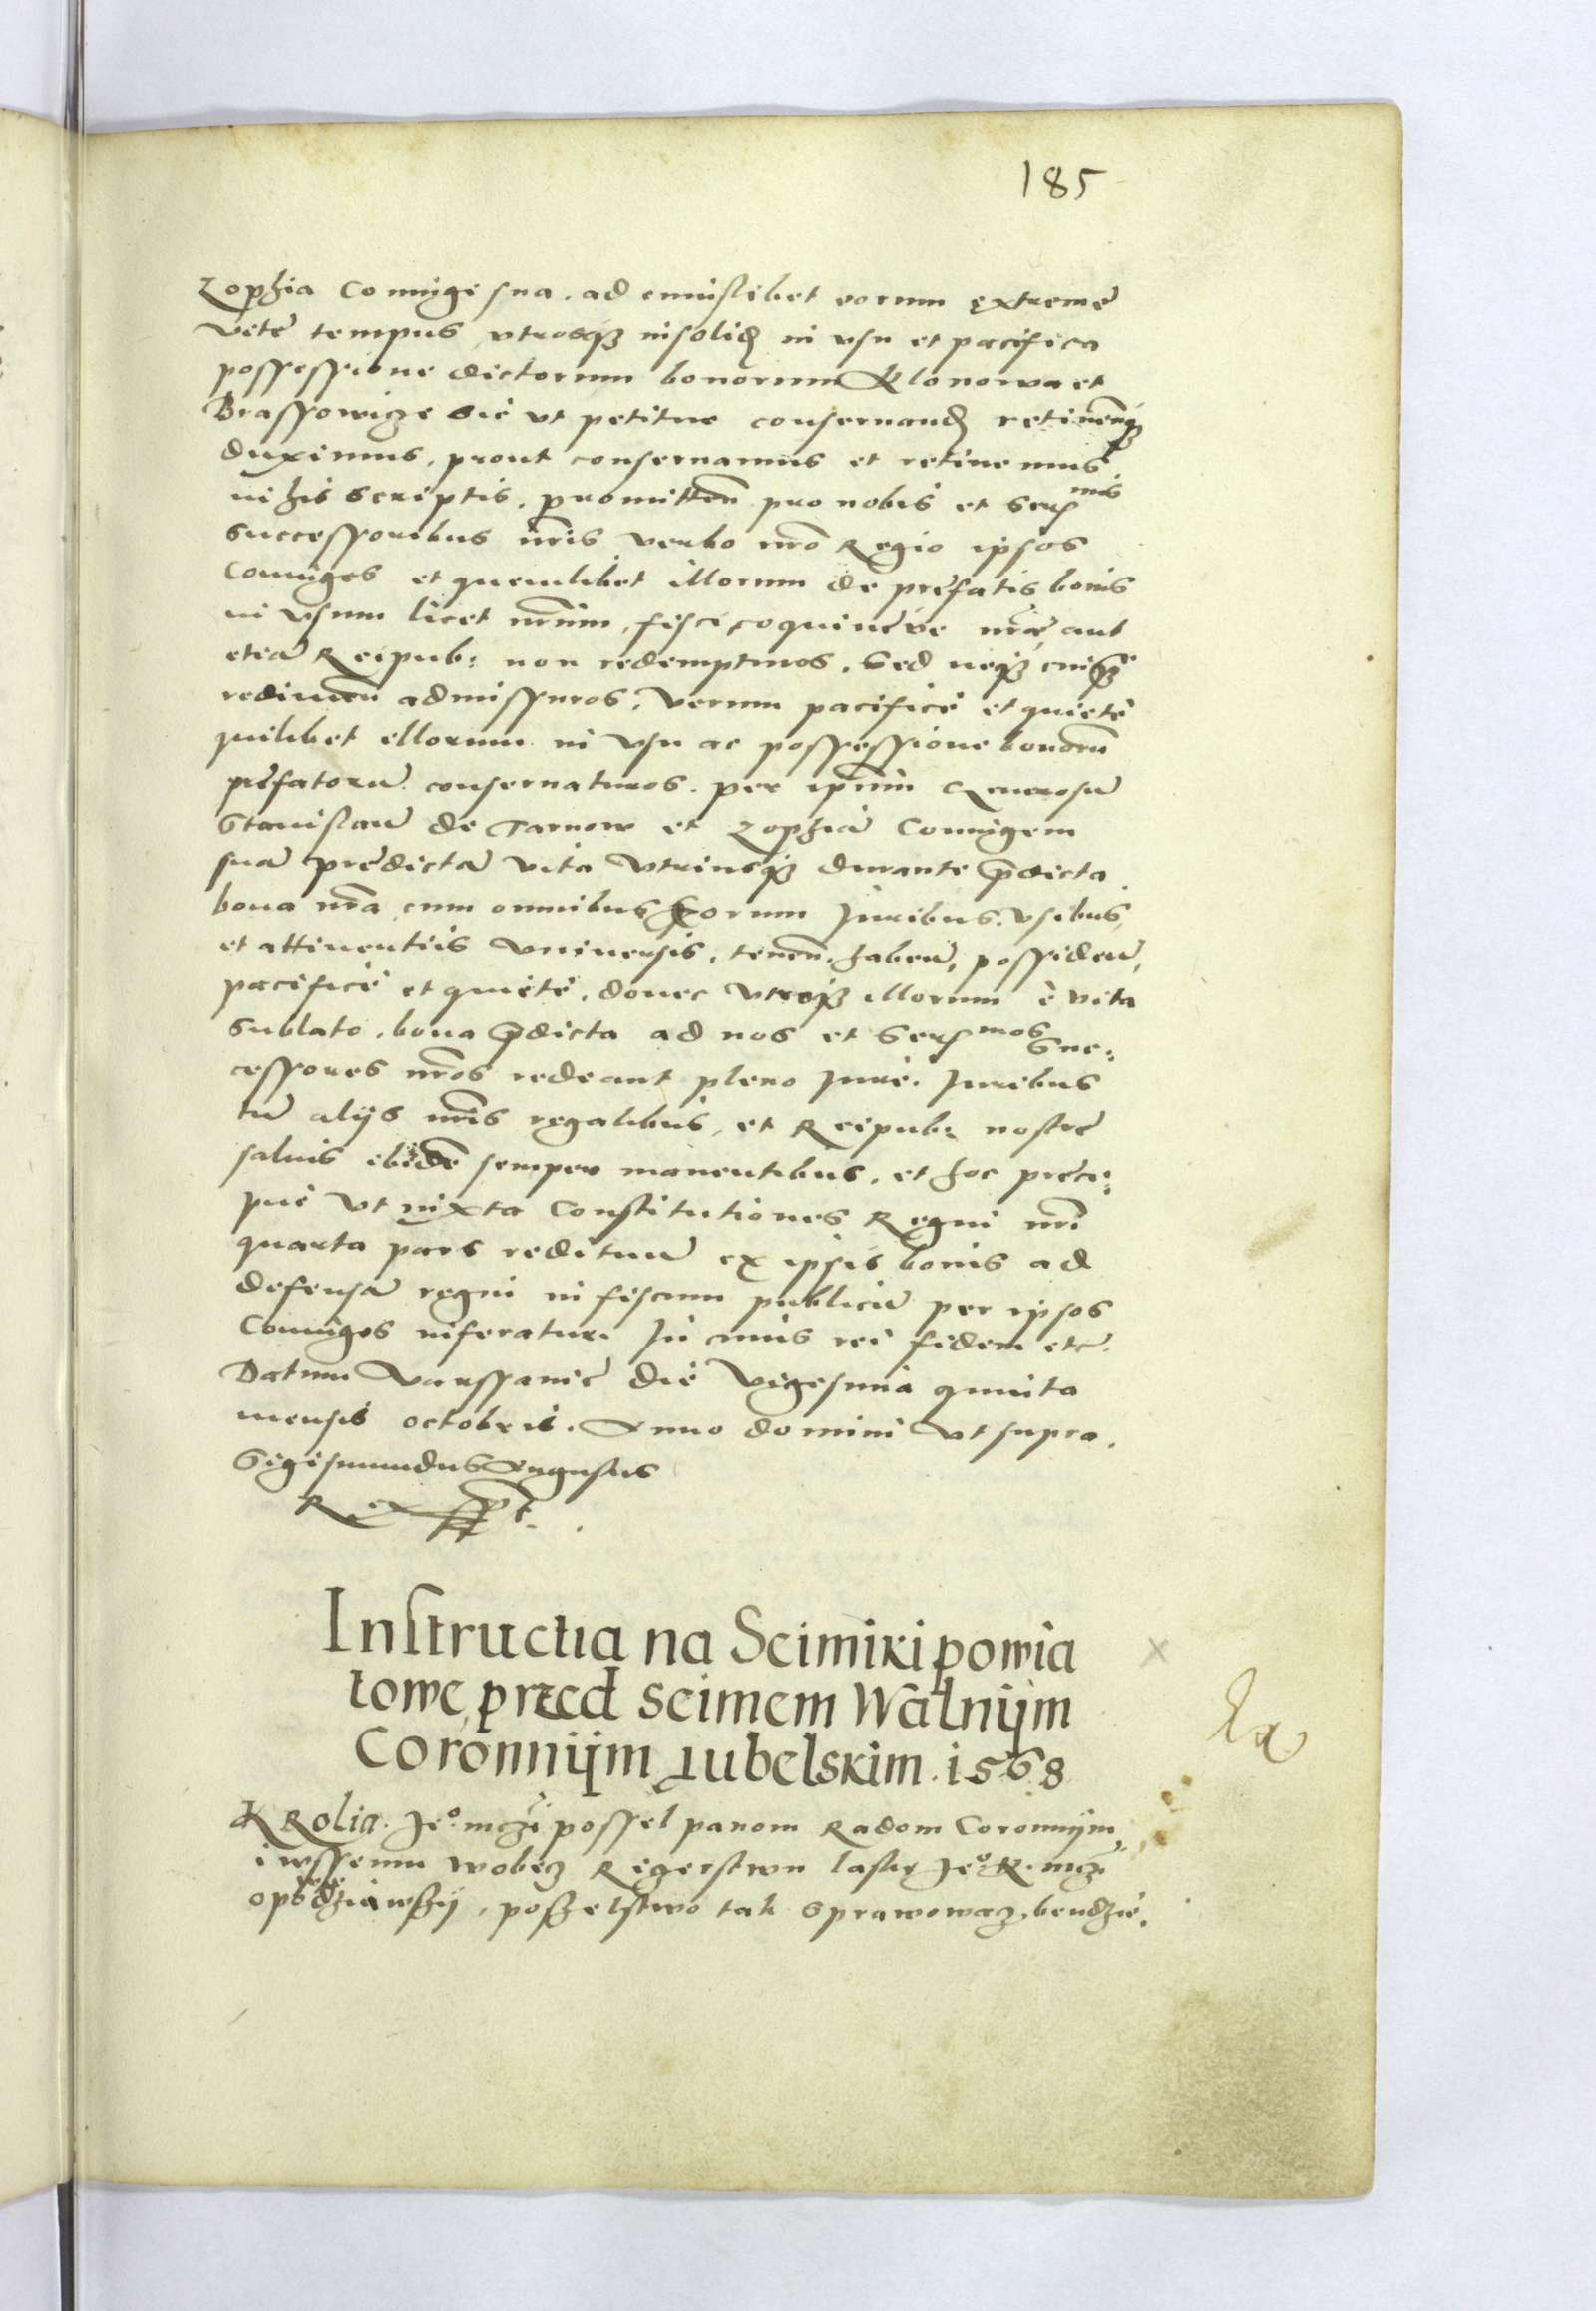 185
Zophia Coniuge sua. ad cuiuslibet eorum extremę
vitę tempus, utrosq3 insolid in usu et pacifica
possessione dictorum bonorum Klonowa et
Brassowicze sic ut petitur conseruand retinenq3
duximus. prout conseruamus et retinemus
in his scriptis. promitten pro nobis et Ser mis
successoribus nris verbo nro Regio ipsos
Coniuges et quemlibet illorum de prefatis bonis
in usum licet nrum, fisci, coquinęve nrę, aut
etiā Reipub: non redempturos. Sed neq3 cuiq3
redimen admissuros: verum pacificè et quietè
quilibet illorum in usu ac possessione bonorū
prefatorū conseruaturos. per ipsum Generosū
Stanislaū de Tarnow et Zophiā Coniugem
suā predictā vita utriusq3 durante pdicta
bona nra cum omnibus eorum Juribus. usibus,
et attinentiis vniuersis, tenen. haben, possiden,
pacificè et quietè. donec utroq3 illorum è vita
sublato. bona pdicta ad nos et Ser mos Suc:
cessores nros redeant pleno Jure. Juribus
tū aliis nris regalibus, et Reipub: nostrę
saluis ibidē semper manentibus. et hoc preci:
puè ut iuxta Constitutiones Regni nri
quarta pars redituū ex ipsis bonis ad
defensā regni in fiscum publicū per ipsos
Coniuges inferatur. In cuius rei fidem etc.
Datum Varssavię die vigesima quinta
mensis octobris. Anno domini ut supra.
Sigismundus Augustus
Rex sspt.
Instructia na Seimiki powia
towe, przed Seimem Walnijm
Coronnijm Lubelskim. 1568
Krolia. Je°. mczi possel panom Radom Coronnijm,
i wssemu wobecz Rigerstwu laskę Je° K. mczi
opowiedziawszij, poszelstwo tak sprawowacz bendzie.